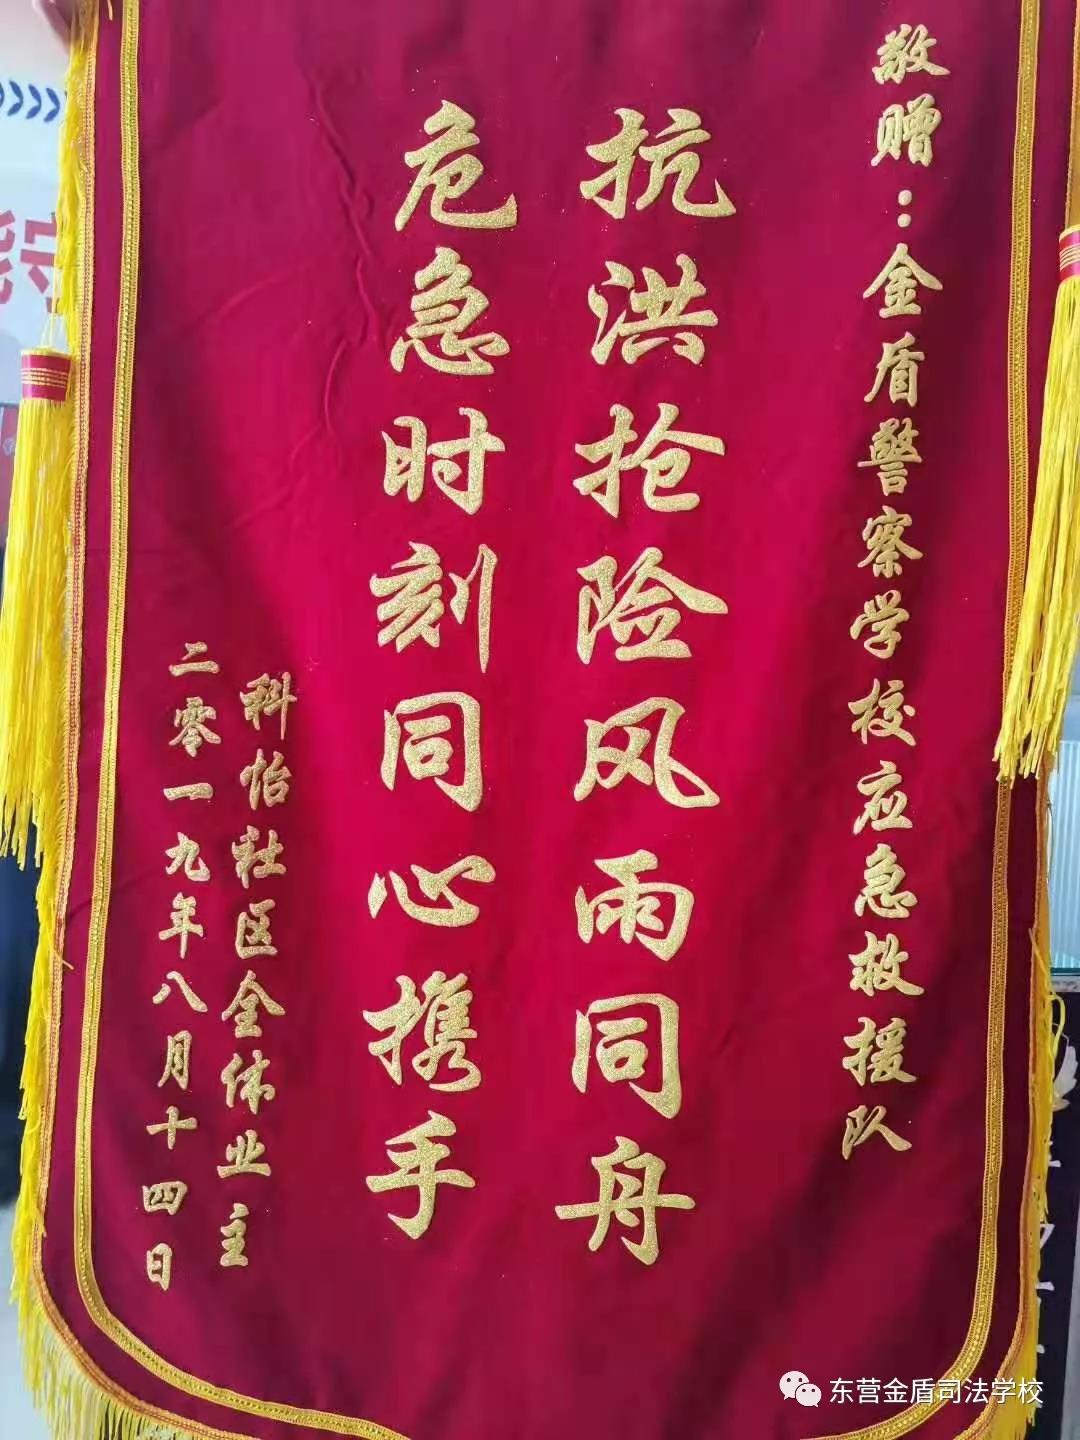 敬赠：金盾警察学校应急救援队
抗洪抢险风雨同舟
危急时刻同心携手
科怡社区全体业主
二零一九年八月十四日
东营金盾司法学校